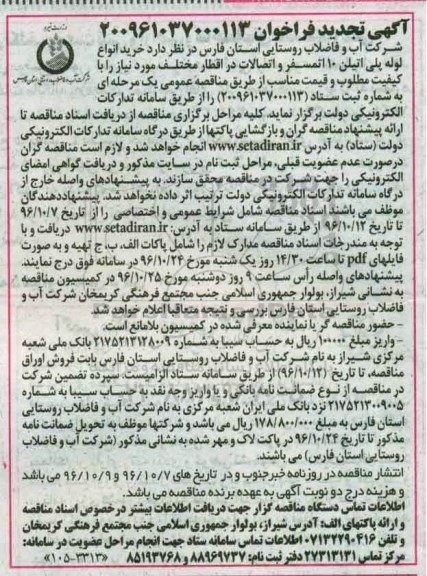 آگهی تجدید فراخوان ۲۰۰۹۶۱۰۳۷۰۰۰۱۱۳
شرکت آب و فاضلاب روستایی استان فارس در نظر دارد خرید انواع
لوله پلی اتیلن ۱۰ اتمسفر و اتصالات در اقطار مختلف مورد نیاز را با
کیفیت مطلوب و قیمت مناسب از طریق مناقصه عمومی یک مرحله ای
به شماره ثبت ستاد (۲۰۰۹۶۱۰۳۷۰۰۰۱۱۳) را از طریق سامانه تدارکات
الکترونیکی دولت برگزار نماید. کلیه مراحل برگزاری مناقصه از دریافت اسناد مناقصه تا
ارائه پیشنهاد مناقصه گران و بازگشایی پاکتها از طریق درگاه سامانه تدارکات الکترونیکی
دولت (ستاد) به آدرس www.setadiran.ir انجام خواهد شد و لازم است مناقصه گران
درصورت عدم عضویت قبلی، مراحل ثبت نام در سایت مذکور و دریافت گواهی امضای
الکترونیکی را جهت شرکت در مناقصه محقق سازند. به پیشنهادهای واصله خارج از
درگاه سامانه تدارکات الکترونیکی دولت ترتیب اثر داده نخواهد شد. پیشنهاددهندگان
موظف می باشند اسناد مناقصه شامل شرایط عمومی و اختصاصی را از تاریخ ۹۶/۱۰/۷
تا تاریخ ۹۶/۱۰/۱۲ از طریق سامانه ستاد به آدرس: www.setadiran.ir دریافت و با
توجه به مندرجات اسناد مناقصه مدارک لازم را شامل پاکات الف، ب، ج تهیه و به صورت
فایلهای pdf تا ساعت ۱۴/۳۰ روز یک شنبه مورخ ۹۶/۱۰/۲۴ در سامانه فوق درج نمایند.
پیشنهادهای واصله رأس ساعت ۹ روز دوشنبه مورخ ۹۶/۱۰/۲۵ در کمیسیون مناقصه
به نشانی شیراز، بولوار جمهوری اسلامی جنب مجتمع فرهنگی کریمخان شرکت آب و
فاضلاب روستایی استان فارس بررسی و نتیجه متعاقبا اعلام خواهد شد.
- حضور مناقصه گر یا نماینده معرفی شده در کمیسیون بلامانع است.
- واریز مبلغ ۱۰۰۰۰۰ ریال به حساب سیبا به شماره ۲۱۷۵۲۱۳۱۲۸۰۰۹ بانک ملی شعبه
مرکزی شیراز به نام شرکت آب و فاضلاب روستایی استان فارس بابت فروش اوراق
مناقصه، تا تاریخ (۹۶/۱۰/۱۲) از طریق سامانه ستاد الزامیست سپرده تضمین شرکت
در مناقصه از نوع ضمانت نامه بانکی و یا واریز وجه نقد به حساب سیبا به شماره
۲۱۷۵۲۱۳۰۰۹۰۰۵ نزد بانک ملی ایران شعبه مرکزی به نام شرکت آب و فاضلاب روستایی
استان فارس به مبلغ ۱۷۸/۸۰۰/۰۰۰ ریال می باشد و شرکتها موظف به تحویل ضمانت نامه
مذکور تا تاریخ ۹۶/۱۰/۲۴ در پاکت لاک و مهر شده به نشانی مذکور (شرکت آب و فاضلاب
روستایی استان فارس) می باشند.
انتشار مناقصه در روزنامه خبرجنوب و در تاریخ های ۹۶/۱۰/۷ و ۹۶/۱۰/۹ می باشد
و هزینه درج دو نوبت آگهی به عهده برنده مناقصه می باشد.
اطلاعات تماس دستگاه مناقصه گزار جهت دریافت اطلاعات بیشتر در خصوص اسناد مناقصه
و ارائه پاکتهای الف: آدرس شیراز، بولوار جمهوری اسلامی جنب مجتمع فرهنگی کریمخان
و تلفن ۰۷۱۳۲۲۹۰۴۱۶ اطلاعات تماس سامانه ستاد جهت انجام مراحل عضویت در سامانه:
مرکز تماس ۲۷۳۱۳۱۳۱ دفتر ثبت نام: ۸۸۹۶۹۷۳۷ و ۸۵۱۹۳۷۶۸ «۱۰۵-۳۳۱۳»